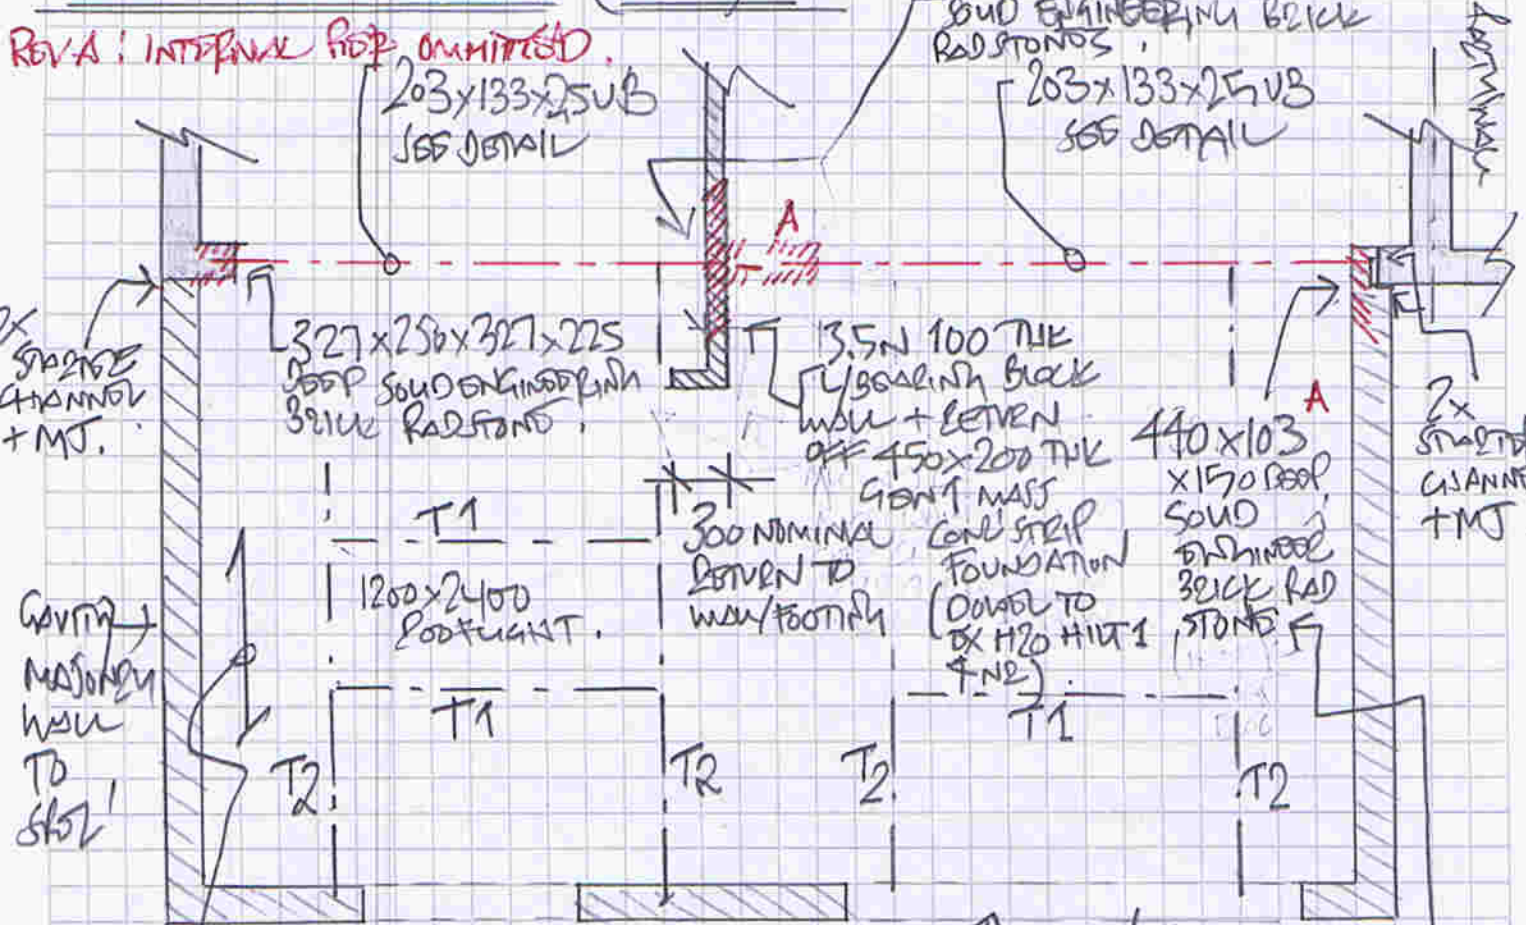 REV.A: INTERNAL PIER OMMITTED.
203x133x25UB
SEE DETAIL
SOLID ENGINEERING BRICK
PADSTONES.
203x133x25UB
SEE DETAIL
PARTY WALL
A
2x
STARTER
CHANNEL
+ MJ.
327x256x327x225
DEEP SOLID ENGINEERING
BRICK PADSTONE.
3.5N 100 THK
L/BEARING BLOCK
WALL + RETURN
OFF 450x200 THK
GEN 1 MASS
CONC STRIP
FOUNDATION
(DOWEL TO
EX H20 HILTI
4NR)
A
440x103
x150 DEEP
SOLID
ENGINEER
BRICK PAD
STONE
2x
STARTER
CHANNEL
+MJ
T1
1200x2400
ROOFLIGHT.
T1
300 NOMINAL
RETURN TO
WALL/FOOTING
T1
CAVITY
MASONRY
WALL
TO
SPEC!
T2
T2
T2
T2